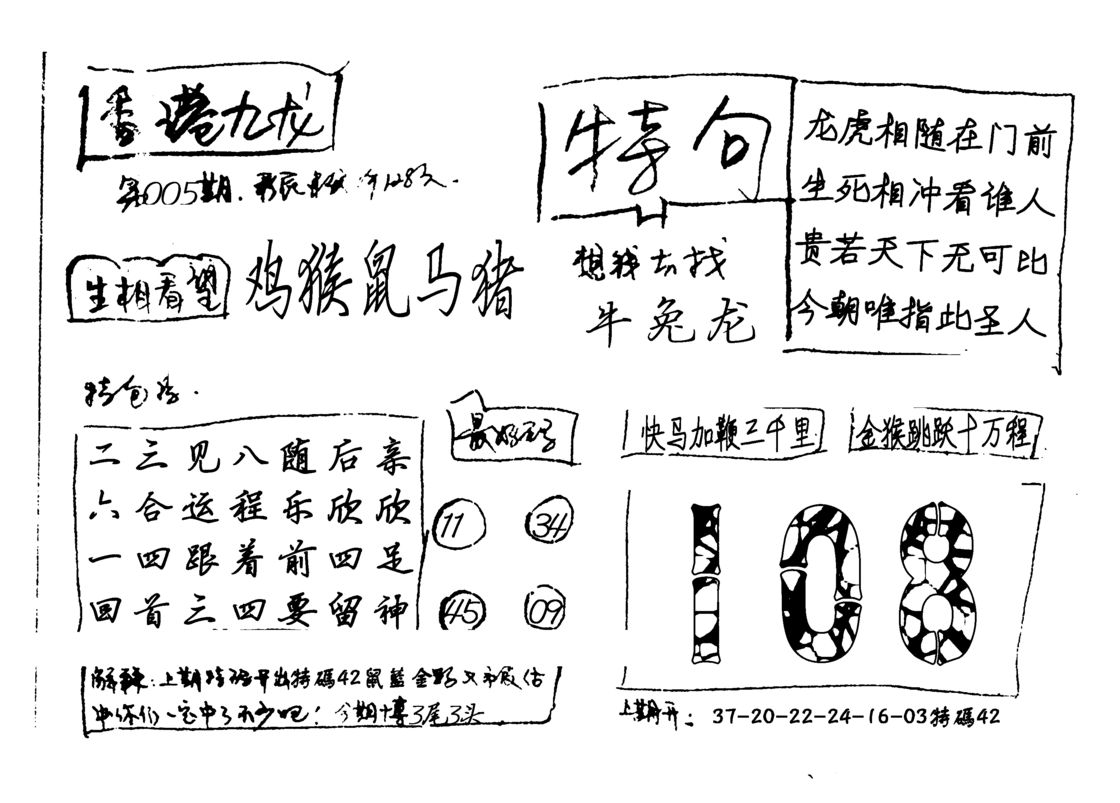 九龙
005期.
生相看望
鸡猴鼠马猪
特句
龙虎相随在门前
生死相冲看谁人
贵若天下无可比
今朝唯指此圣人
想我去找
牛兔龙
二三见八随后亲
六合运程乐欣欣
一四跟着前四足
回首三四要留神
11
34
45
09
快马加鞭三千里
金猴跳跃十万程
108
上期 开出特碼42鼠藍
中你们一定中了不少吧! 今期
上期开: 37-20-22-24-16-03特碼42